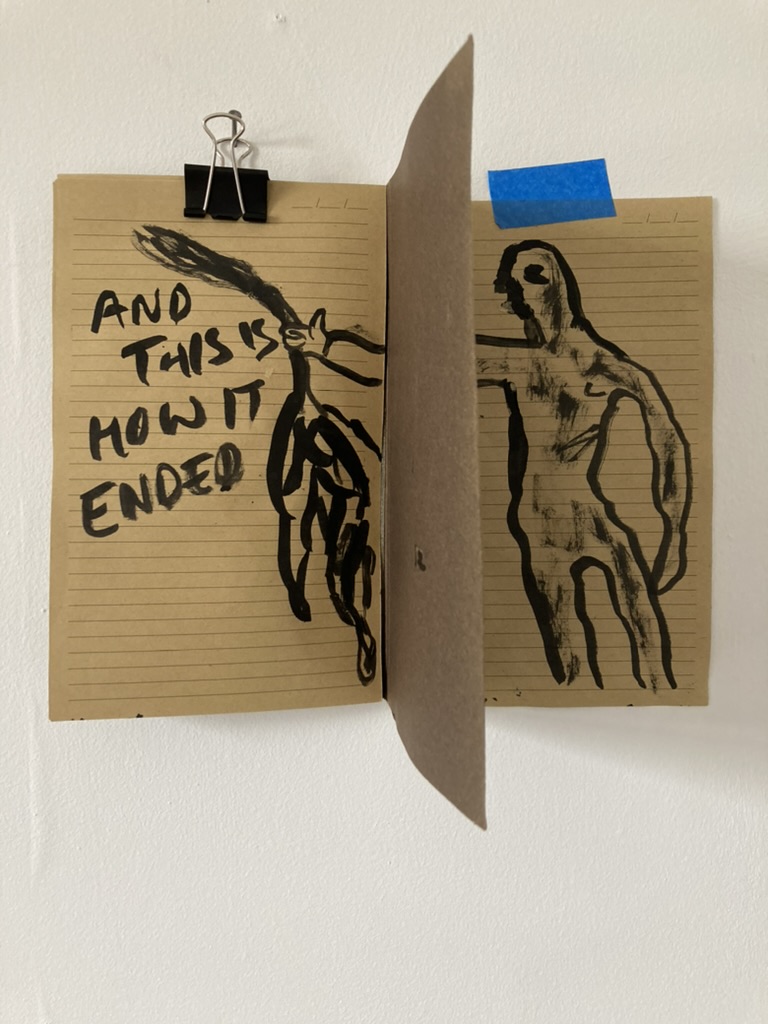 AND
THIS IS
HOW IT
ENDED